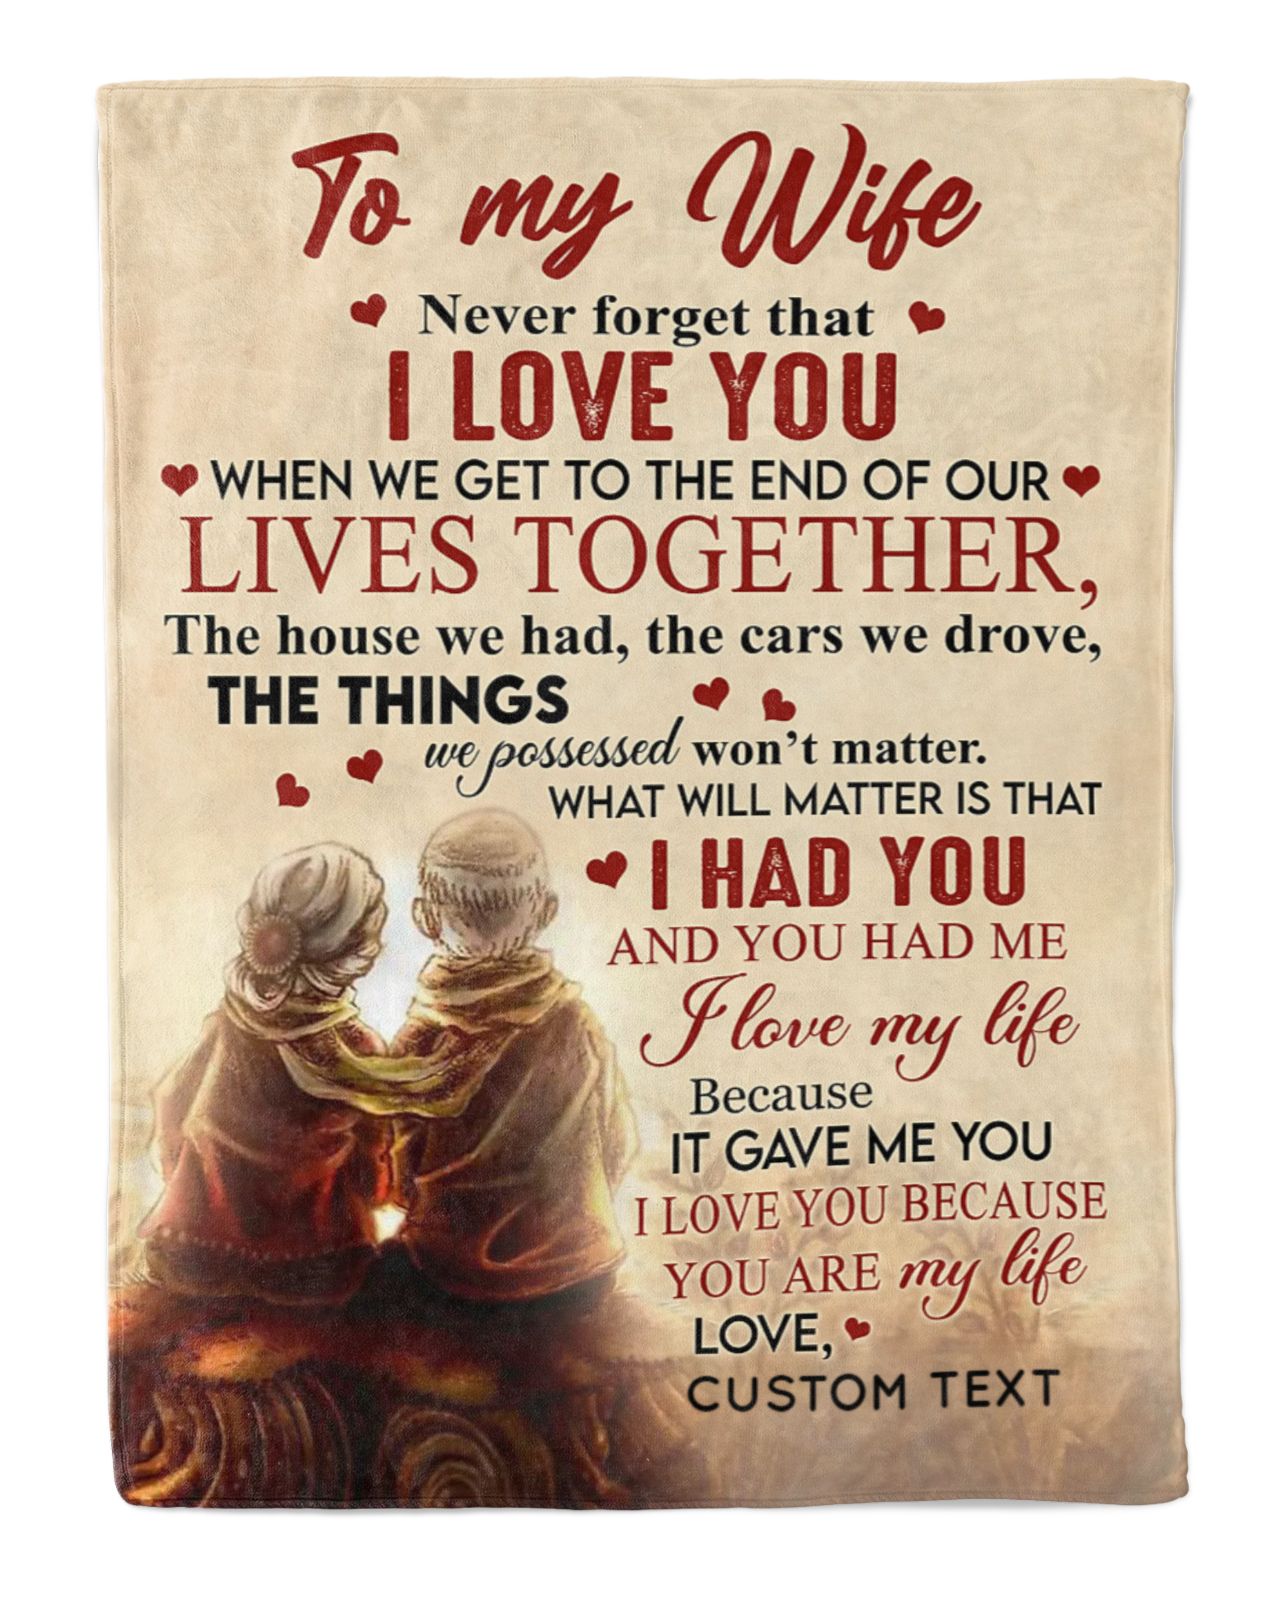 To my Wife
Never forget that
I LOVE YOU
WHEN WE GET TO THE END OF OUR
LIVES TOGETHER,
The house we had, the cars we drove,
THE THINGS
we possessed won't matter.
WHAT WILL MATTER IS THAT
I HAD YOU
AND YOU HAD ME
I love my life
Because
IT GAVE ME YOU
I LOVE YOU BECAUSE
YOU ARE my life
LOVE,
CUSTOM TEXT